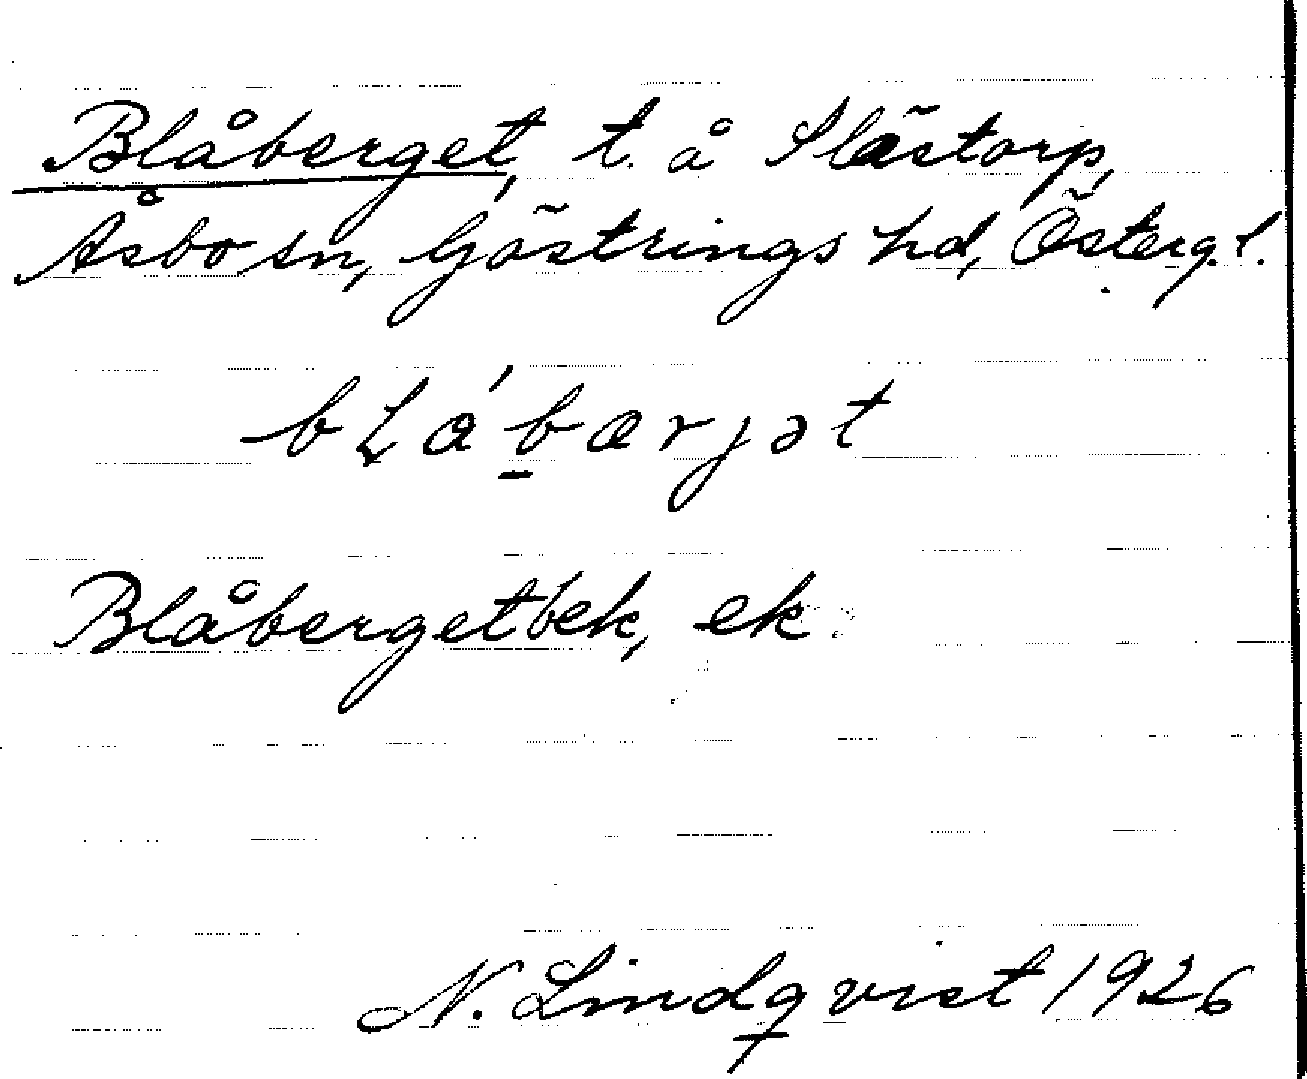 Blåberget, t. å Slästorp,
Åsbo sn, Göstrings hd, Österg.l.
bLá'bærjət
Blåbergetbek, ek
N. Lindqvist 1926